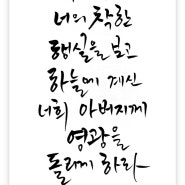 너의 착한
행실을 보고
하늘에 계신
너희 아버지께
영광을
돌리게 하라